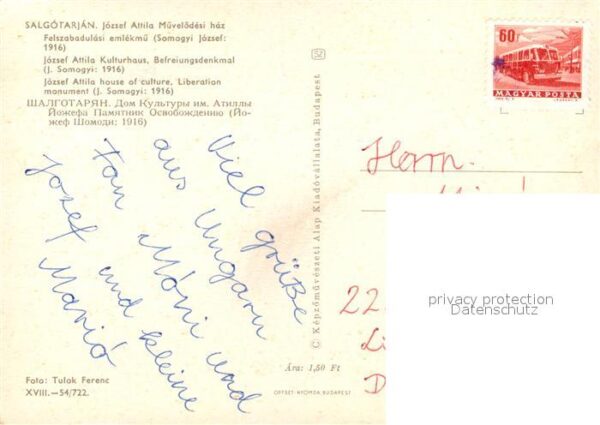 SALGÓTARJÁN. József Attila Művelődési ház
Felszabadulási emlékmű (Somogyi József:
1916)
József Attila Kulturhaus, Befreiungsdenkmal
(J. Somogyi: 1916)
József Attila house of culture, Liberation
monument (J. Somogyi: 1916)
ШАЛГОТАРЯН. Дом Культуры им. Атиллы
Йожефа Памятник Освобождению (Йо-
жеф Шомоди: 1916)
Viel grüße
aus Ungarn
Fan Móni und
Jozef und kleine
Manió
Foto: Tulok Ferenc
XVIII.—54/722.
© Képzőművészeti Alap Kiadóvállalata, Budapest
Ára: 1,50 Ft
OFFSET-NYOMDA BUDAPEST
60f
MAGYAR POSTA
Herrn.
22
privacy protection
Datenschutz